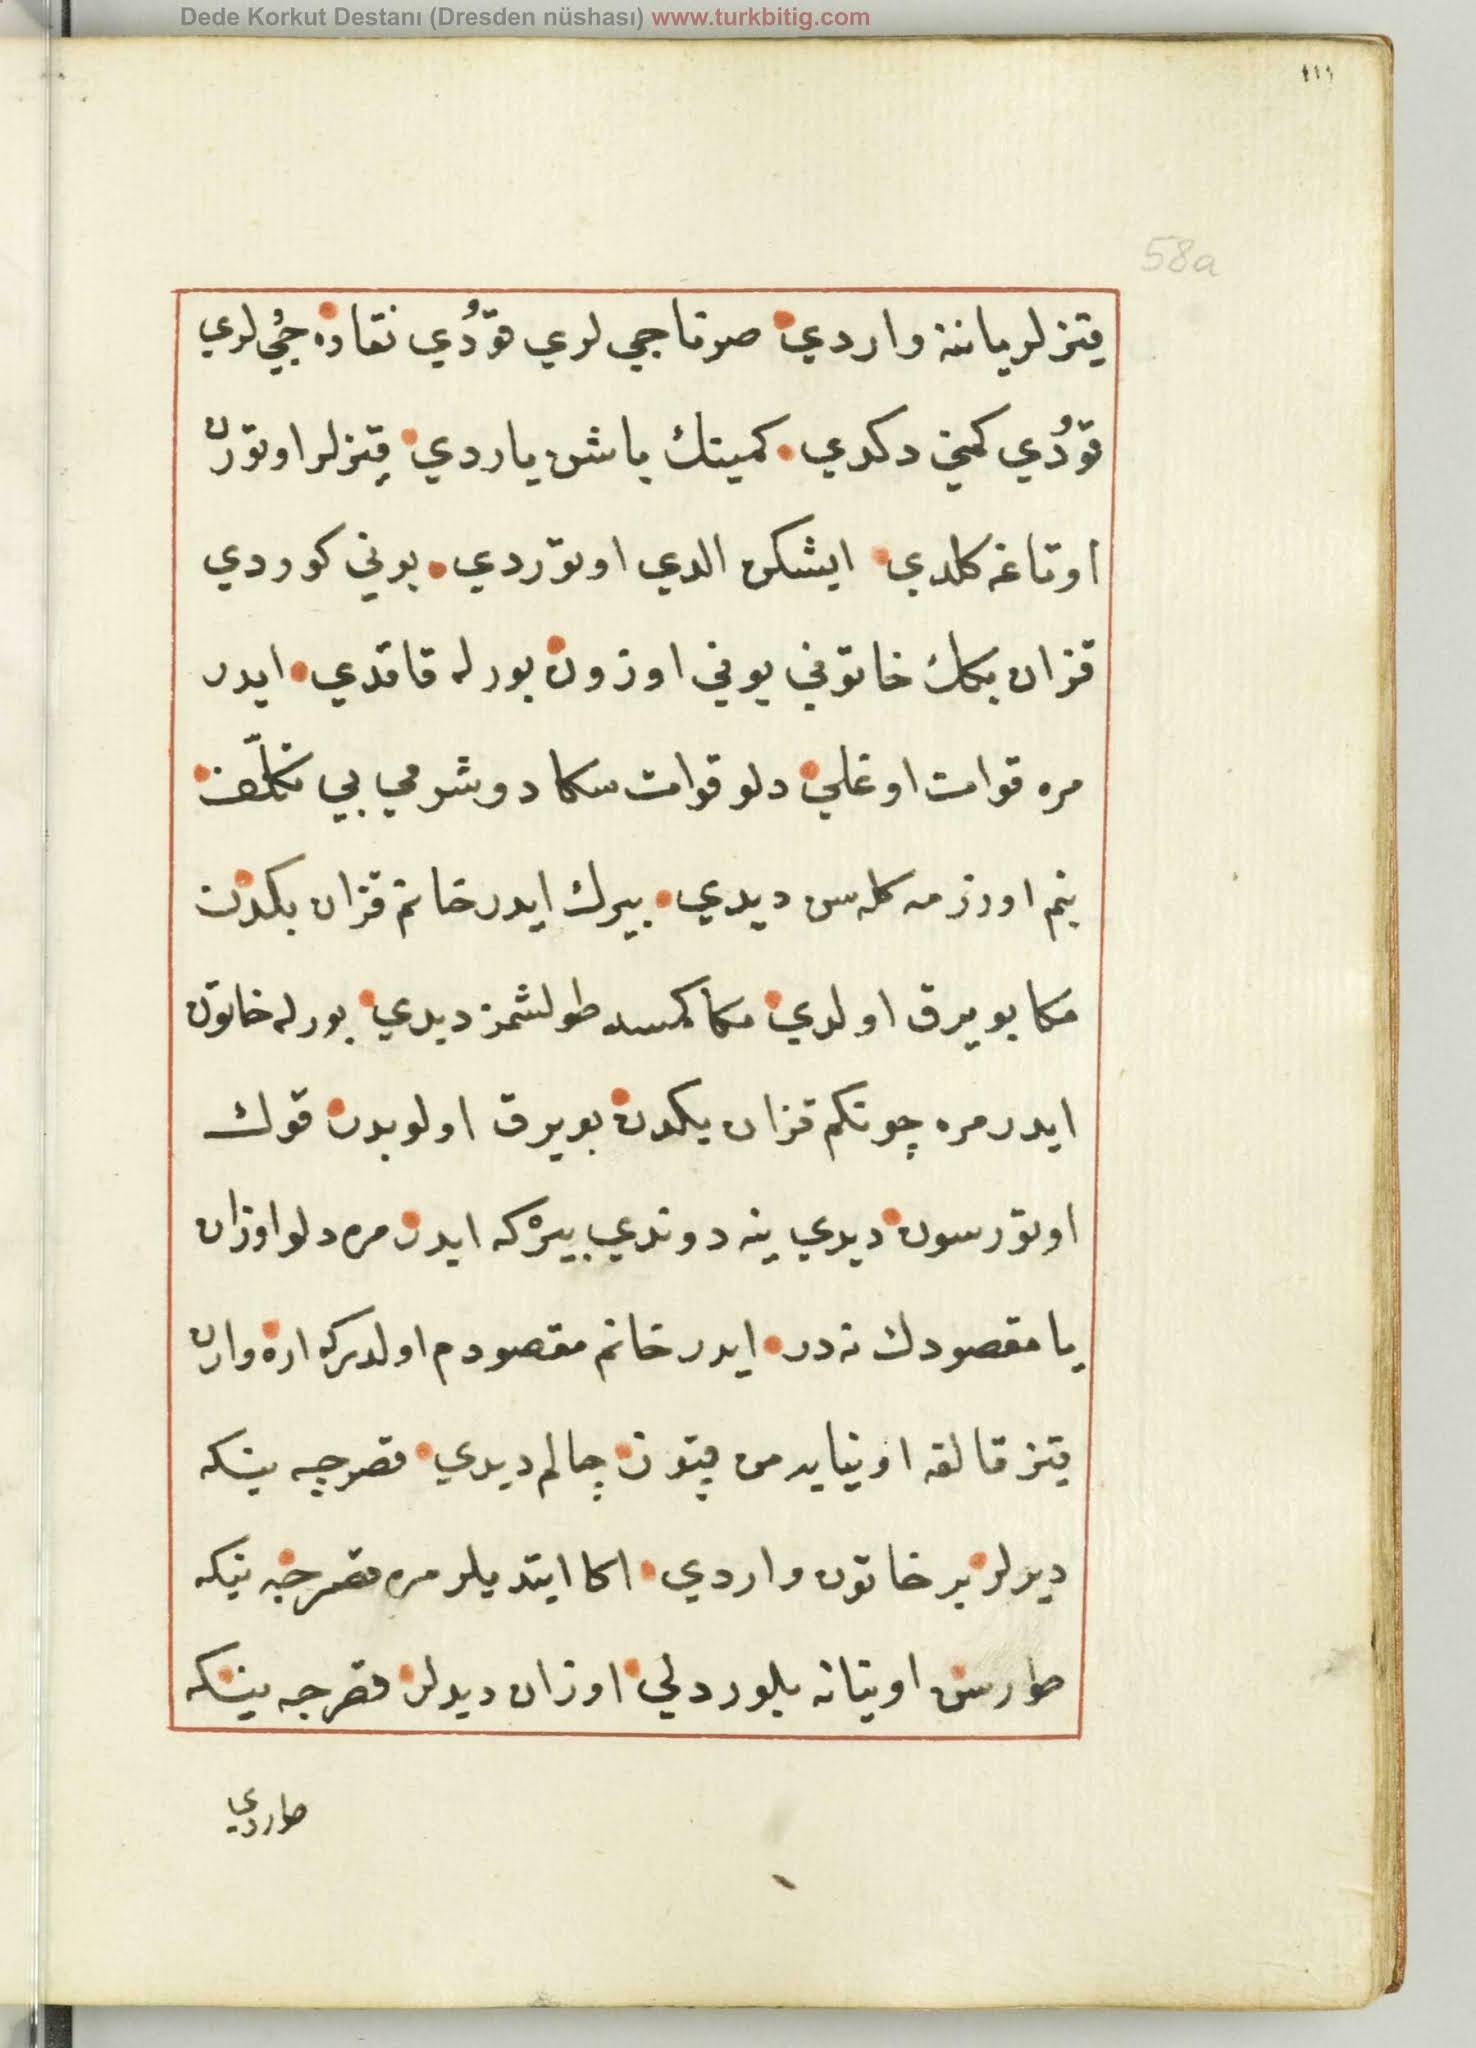 Dede Korkut Destanı (Dresden nüshası) www.turkbitig.com
١١١
58a
قیزلر یاننه واردي صرناجی لري قودي نقاره جی لري
قودي كمنی دكدي كمینك باشن یاردي قیزلر اوتورن
اوتاغه كلدي ایشكن الدي اوتوردي بونی كوردي
قزان بكك خاتونی بویی اوزون بورله قاقدي ایدر
مره قوات اوغلی دلو قوات سكا دوشرمی بی تكلف
بنم اوزرمه كله سن دیدي بیرك ایدر خانم قزان بكدن
مكا بویرق اولدي مكا كمسه طولشمز دیدي بورله خاتون
ایدر مره چونكم قزان بكدن بویرق اولوبدن قوك
اوتورسون دیدي ینه دوندي بیركه ایدر مره دلو اوزان
یا مقصودك نه در ایدر خانم مقصودم اولدركه اره واران
قیز قالقه اوینایه من قپوز چالم دیدي قصرجه ینكه
دیرلر بر خاتون واردي اكا ایتدیلر مره قصرجه ینكه
طورسن اوینا نه بلور دلی اوزان دیدلر قصرجه ینكه
طوردي